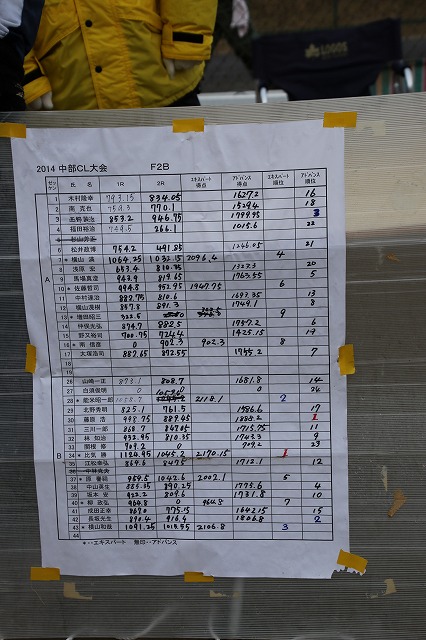 LOGOS
2014 中部CL大会 F2B
ゼッケン 氏 名 1R 2R エキスパート得点 アドバンス得点 エキスパート順位 アドバンス順位
A
1 木村隆幸 793.15 834.05 1627.2 16
2 南 克也 759.3 770.1 1529.4 18
3 長野裝治 853.2 946.75 1799.95 3
4 福田裕治 749.5 266.1 1015.6 22
5
6 松井政博 754.2 491.85 1246.05 21
7 * 横山 満 1064.25 1032.15 2096.4 4
8 浅原 宏 20
9 馬場真澄 943.9 819.65 1763.55 5
10 * 佐藤哲司 994.8 952.95 1947.75 6
11 中村達治 882.75 810.6 1693.35 13
12 横山茂樹 857.8 891.3 1749.1 8
13 * 増田昭三 9
14 仲俣光弘 874.7 882.5 1757.2 6
15 野又裕司 700.75 724.4 1425.15 19
16 * 南 信彦 0 902.3 902.3 8
17 大塚浩司 882.65 872.55 1755.2 7
B
26 山崎一正 873.1 808.7 1681.8 14
27 白須俊明 0 0 0 24
28 * 能米昭一郎 1058.7 1059.4 2118.1 2
29 北野秀明 825.1 761.5 1586.6 17
30 藤原 浩 998.75 889.45 1888.2 1
31 三川一郎 868.7 847.05 1715.75 11
32 林 知治 932.95 810.35 1743.3 9
33 関根 修 709.2 0 709.2 23
34 * 比気 勝 1124.95 1045.2 2170.15 1
35 江松幸弘 864.6 847.5 1712.1 12
36
37 * 原 1042.6 2002.1 5
38 中山英生 885.35 890.25 1775.6 4
39 坂本 安 922.2 809.6 1731.8 10
40 * 柳 政弘 964.8 0 964.8 7
41 成田正幸 867.0 775.15 1642.15 15
42 長坂光生 890.4 916.4 1806.8 2
43 * 横山和哉 1091.25 1015.55 2106.8 3
44
*‥エキスパート 無印‥アドバンス